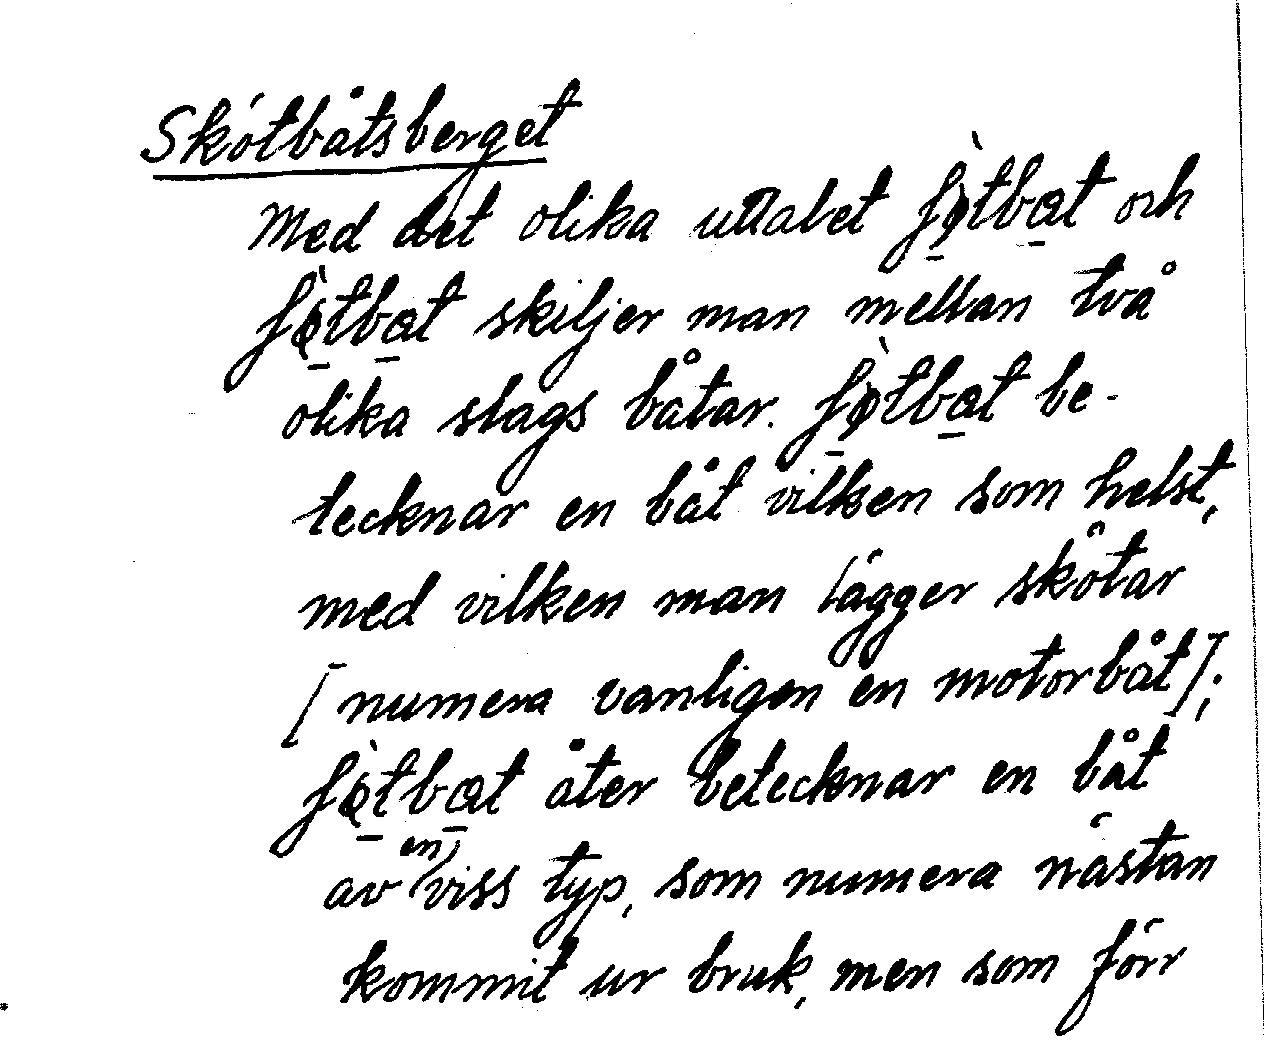 Skötbåtsberget
Med det olika uttalet fø̱̀tba̱t och
fö̱̀tba̱t skiljer man mellan två
olika slags båtar. fø̱̀tba̱t be-
tecknar en båt vilken som helst,
med vilken man lägger skötar
[numera vanligen en motorbåt];
fö̱̀tba̱t åter betecknar en båt
av en viss typ, som numera nästan
kommit ur bruk, men som förr